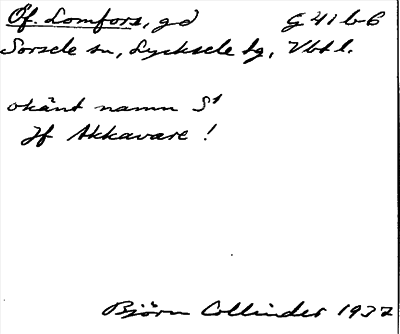 Öf. Lomfors, gd G 41 b-6
Sorsele sn, Lycksele lg, Vbtl.
okänt namn S¹
Jf Akkavare !
Björn Collinder 1937